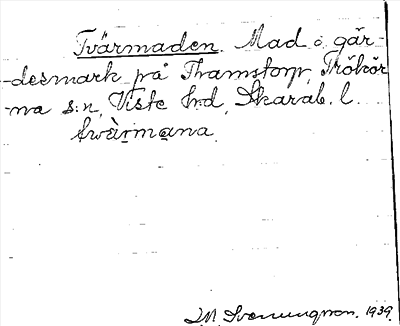 Tvärmaden. Mad å går-
-desmark på Thamstorp, Trökör
-na s:n, Viste hrd, Skarab. l.
twàrmana
J M Svenungsson. 1939.